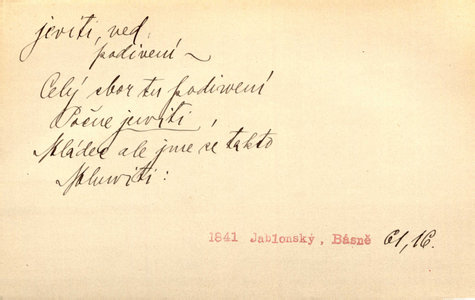 jeviti, ved.
podivení ~
Celý sbor tu podiwení
Počne jewiti,
Mládec ale jme se takto
Mluwiti:
1841 Jablonský, Básně 61, 16.